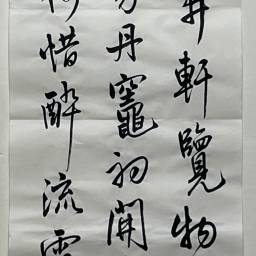 軒覽物
丹竈初開
惜醉流